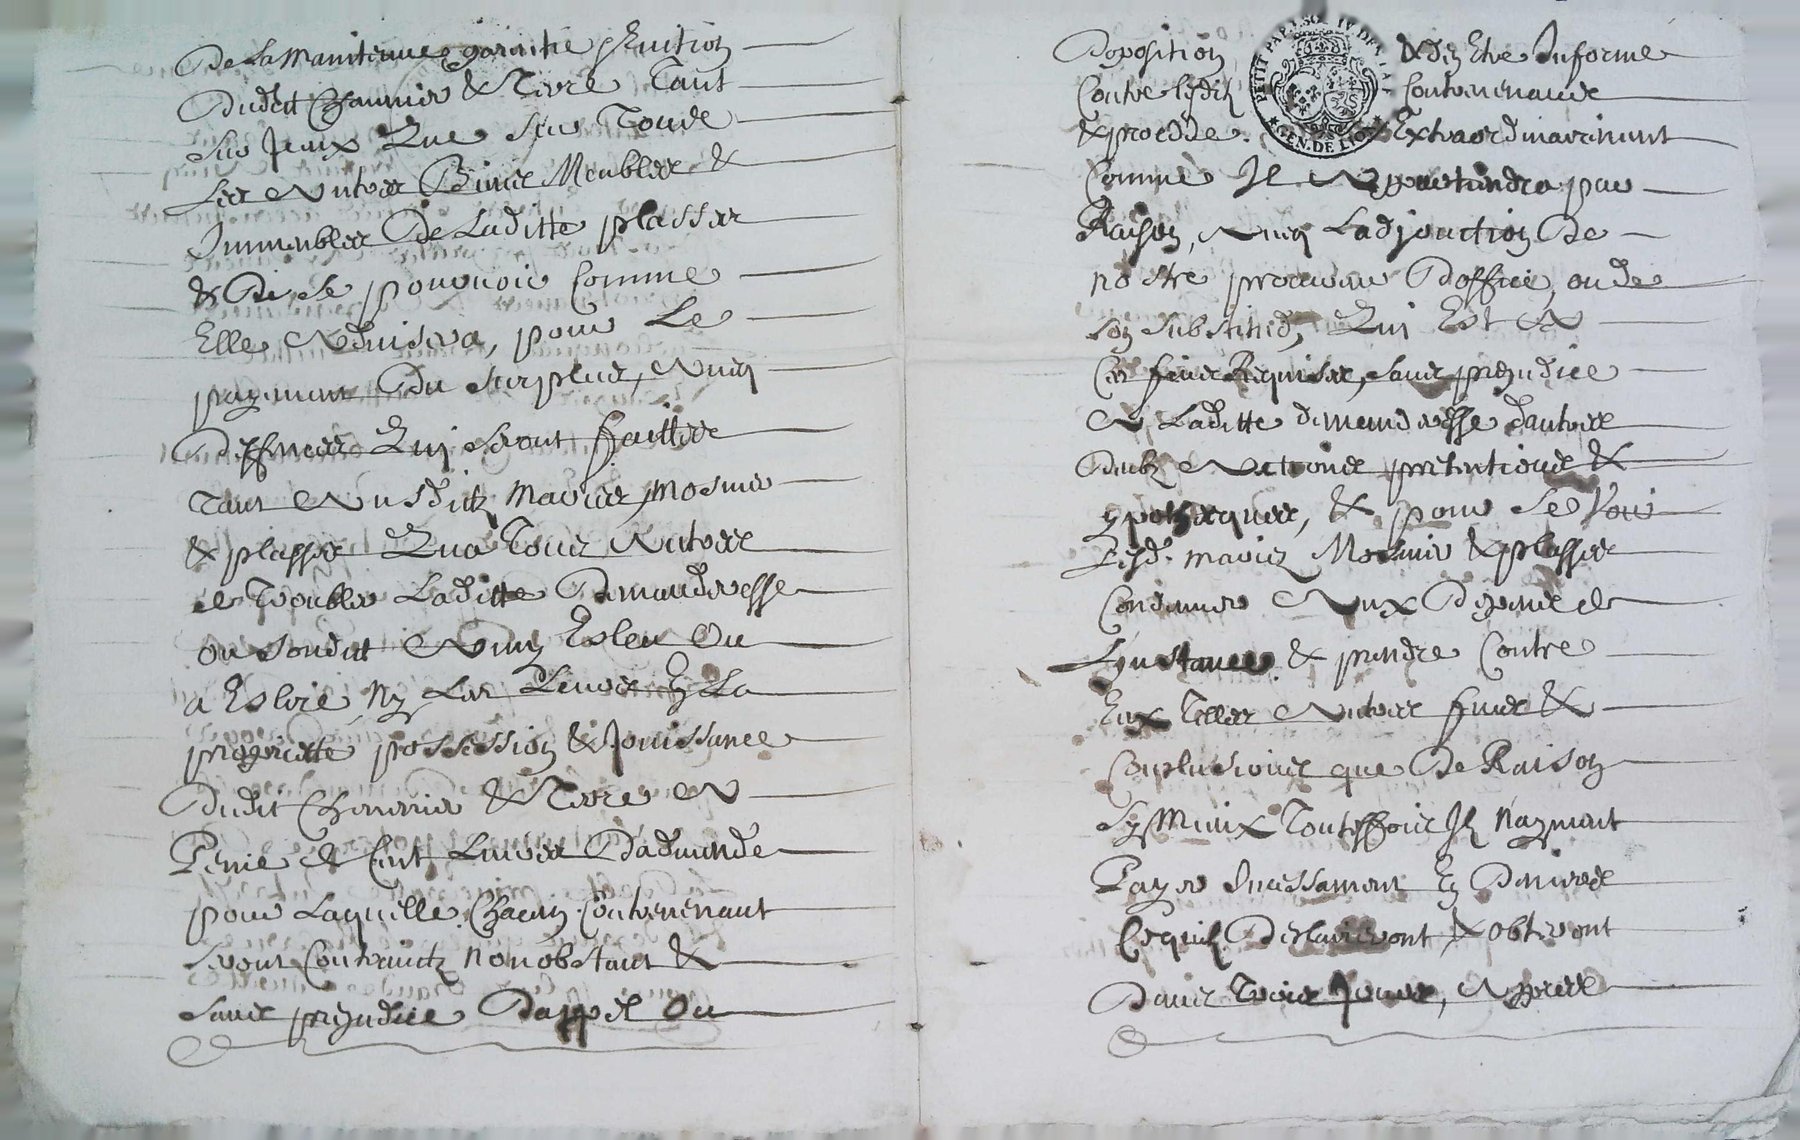 De La Maintenue garentie Eviction
Dudit Chaumier & Terre Tant
Sur Jceux Que Sur Touds
Les Autres Biens Meubles &
Jmmeubles De Laditte plasses
& De Se pourvoir Comme
Elle Advisera, pour Le
payement Du Surplus, Avecq
Deffences Qui Seront faittes
Tant Ausditz Maries Mosnier
& plasses Qua Tous Autres
de Troubler Laditte Demanderesse
ou Sondit Amy Esleu Ou
a Eslire ny Les Leurs En La
proprietté possession & Jouissance
Dudit Chaumier & Terre A
Peine de Cent Livres Dadmende
pour Laquelle Chacun Contrevenant
Seront Contrainctz nonobstant &
Sans prejudice Dappel Ou
PETIT PAP. I. SOL IV DE
GEN. DE
Doposition & den Etre Jnforme
Contre lesditz Contrevenands
& procedde Extraordinairement
Comme Jl Appartiendra par
Raison, Avecq Ladjonction De
nostre procureur Doffice, ou de
Son Substitud, Qui Est A
Ces fins Requise, Sans prejudice
A Laditte demanderesse dautres
Dubz Actions pretentions &
ypotheques, & pour Se Voir
Lesd. Mariez Mosnier & plasses
Condamner Aux Depands de
Lynstance & prendre Contre
Eux Telles Autres fins &
Conplusions que De Raison
Sy Mieux Touteffois Jlz nayment
Payer Jncessament En Deniers
Ce quilz Declareront & Obteront
Dans Trois Jours, Appres